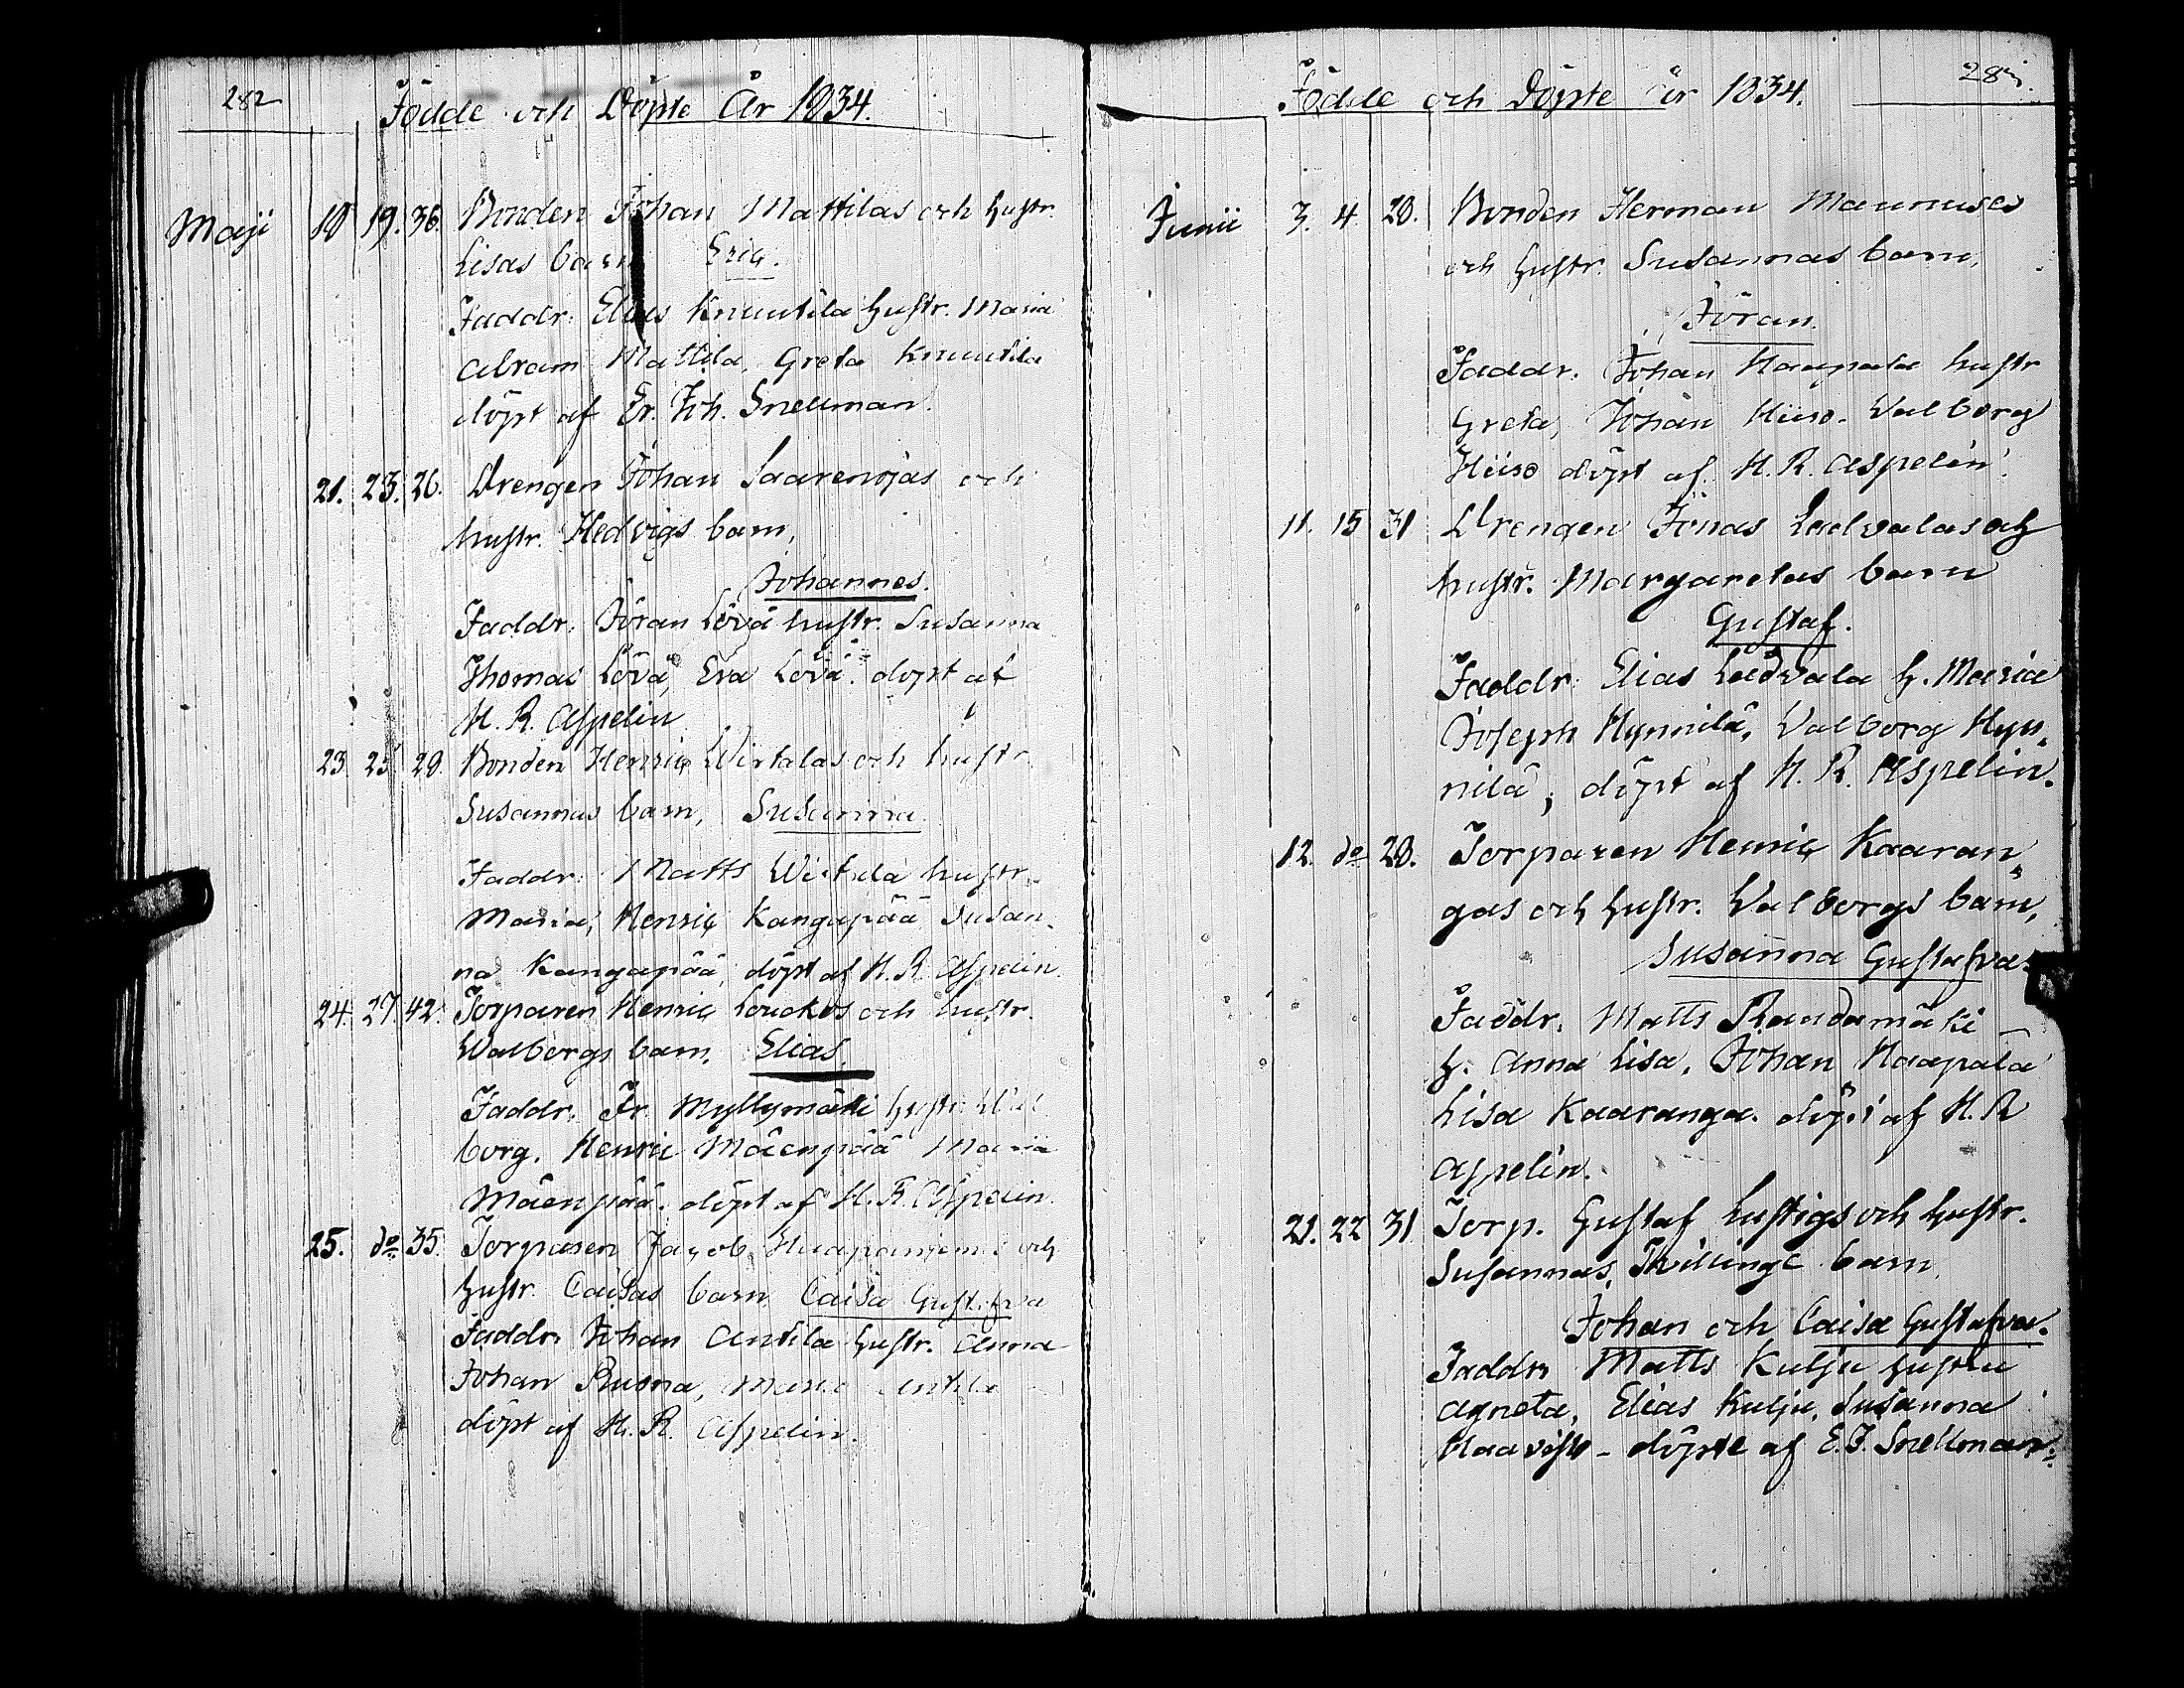 282
Födde och Döpte År 1834.
Maji 18 19. 36. Bonden Johan Mattilas och hustr.
Lisas barn Eric.
Faddr. Elias Knuutila hustr. Maria
Abram Mattila, Greta Knuutila
döpt af Er. Joh. Snellman.
21. 23. 26. Drengen Johan Saarenojas och
hustr. Hedvigs barn,
Johannes.
Faddr. Jöran Lövä hustr. Susanna
Thomas Lövä, Eva Lövä. döpt af
H. R. Aspelin
23. 25. 28. Bonden Henric Wirtalas och hustr.
Susannas barn, Susanna
Faddr. Matts Wirtala hustr.
Maria, Henric Kangapää Susan-
na Kangapää, döpt af H. R. Aspelin.
24. 27. 42. Torparen Henric Louckos och hustr.
Walborgs barn. Elias.
Faddr. Fr. Myllymäki hustr. Wal
borg. Henric Mäenpää Maria
Mäenpää. döpt af H. R. Aspelin
25. do 35. Torparen Jacob Haapaniemis och
hustr. Caisas barn Caisa Gustafva
Faddr. Johan Antila hustr. Anna
Johan Ruona, Maria Antila
döpt af H. R. Aspelin.
Födde och Döpte År 1834.
Junii 3. 4. 28. Bonden Herman Mannuses
och hustr. Susannas barn,
Jöran.
Faddr. Johan Haapala hustr
Greta, Johan Hiiso. Walborg
Hiiso döpt af H. R. Aspelin.
11. 15 31 Drengen Jonas Ladvalas och
hustr. Margaretas barn
Gustaf.
Faddr. Elias Ladvala h. Maria
Joseph Hynnilä, Walborg Hyn-
nilä, döpt af H. R. Aspelin.
12. do 28. Torparen Henric Kaaran-
gas och hustr. Walborgs barn,
Susanna Gustafva.
Faddr. Matts Randamäki
h. Anna Lisa, Johan Haapala
Lisa Kaaranga. döpt af H. R
Aspelin.
21. 22 31 Torp. Gustaf Lustigs och hustr.
Susannas, Tvillinge barn
Johan och Caisa Gustafva.
Faddr. Matts Kulju hustru
Agneta, Elias Kulju, Susanna
Haavisto - döpte af E. J. Snellman.